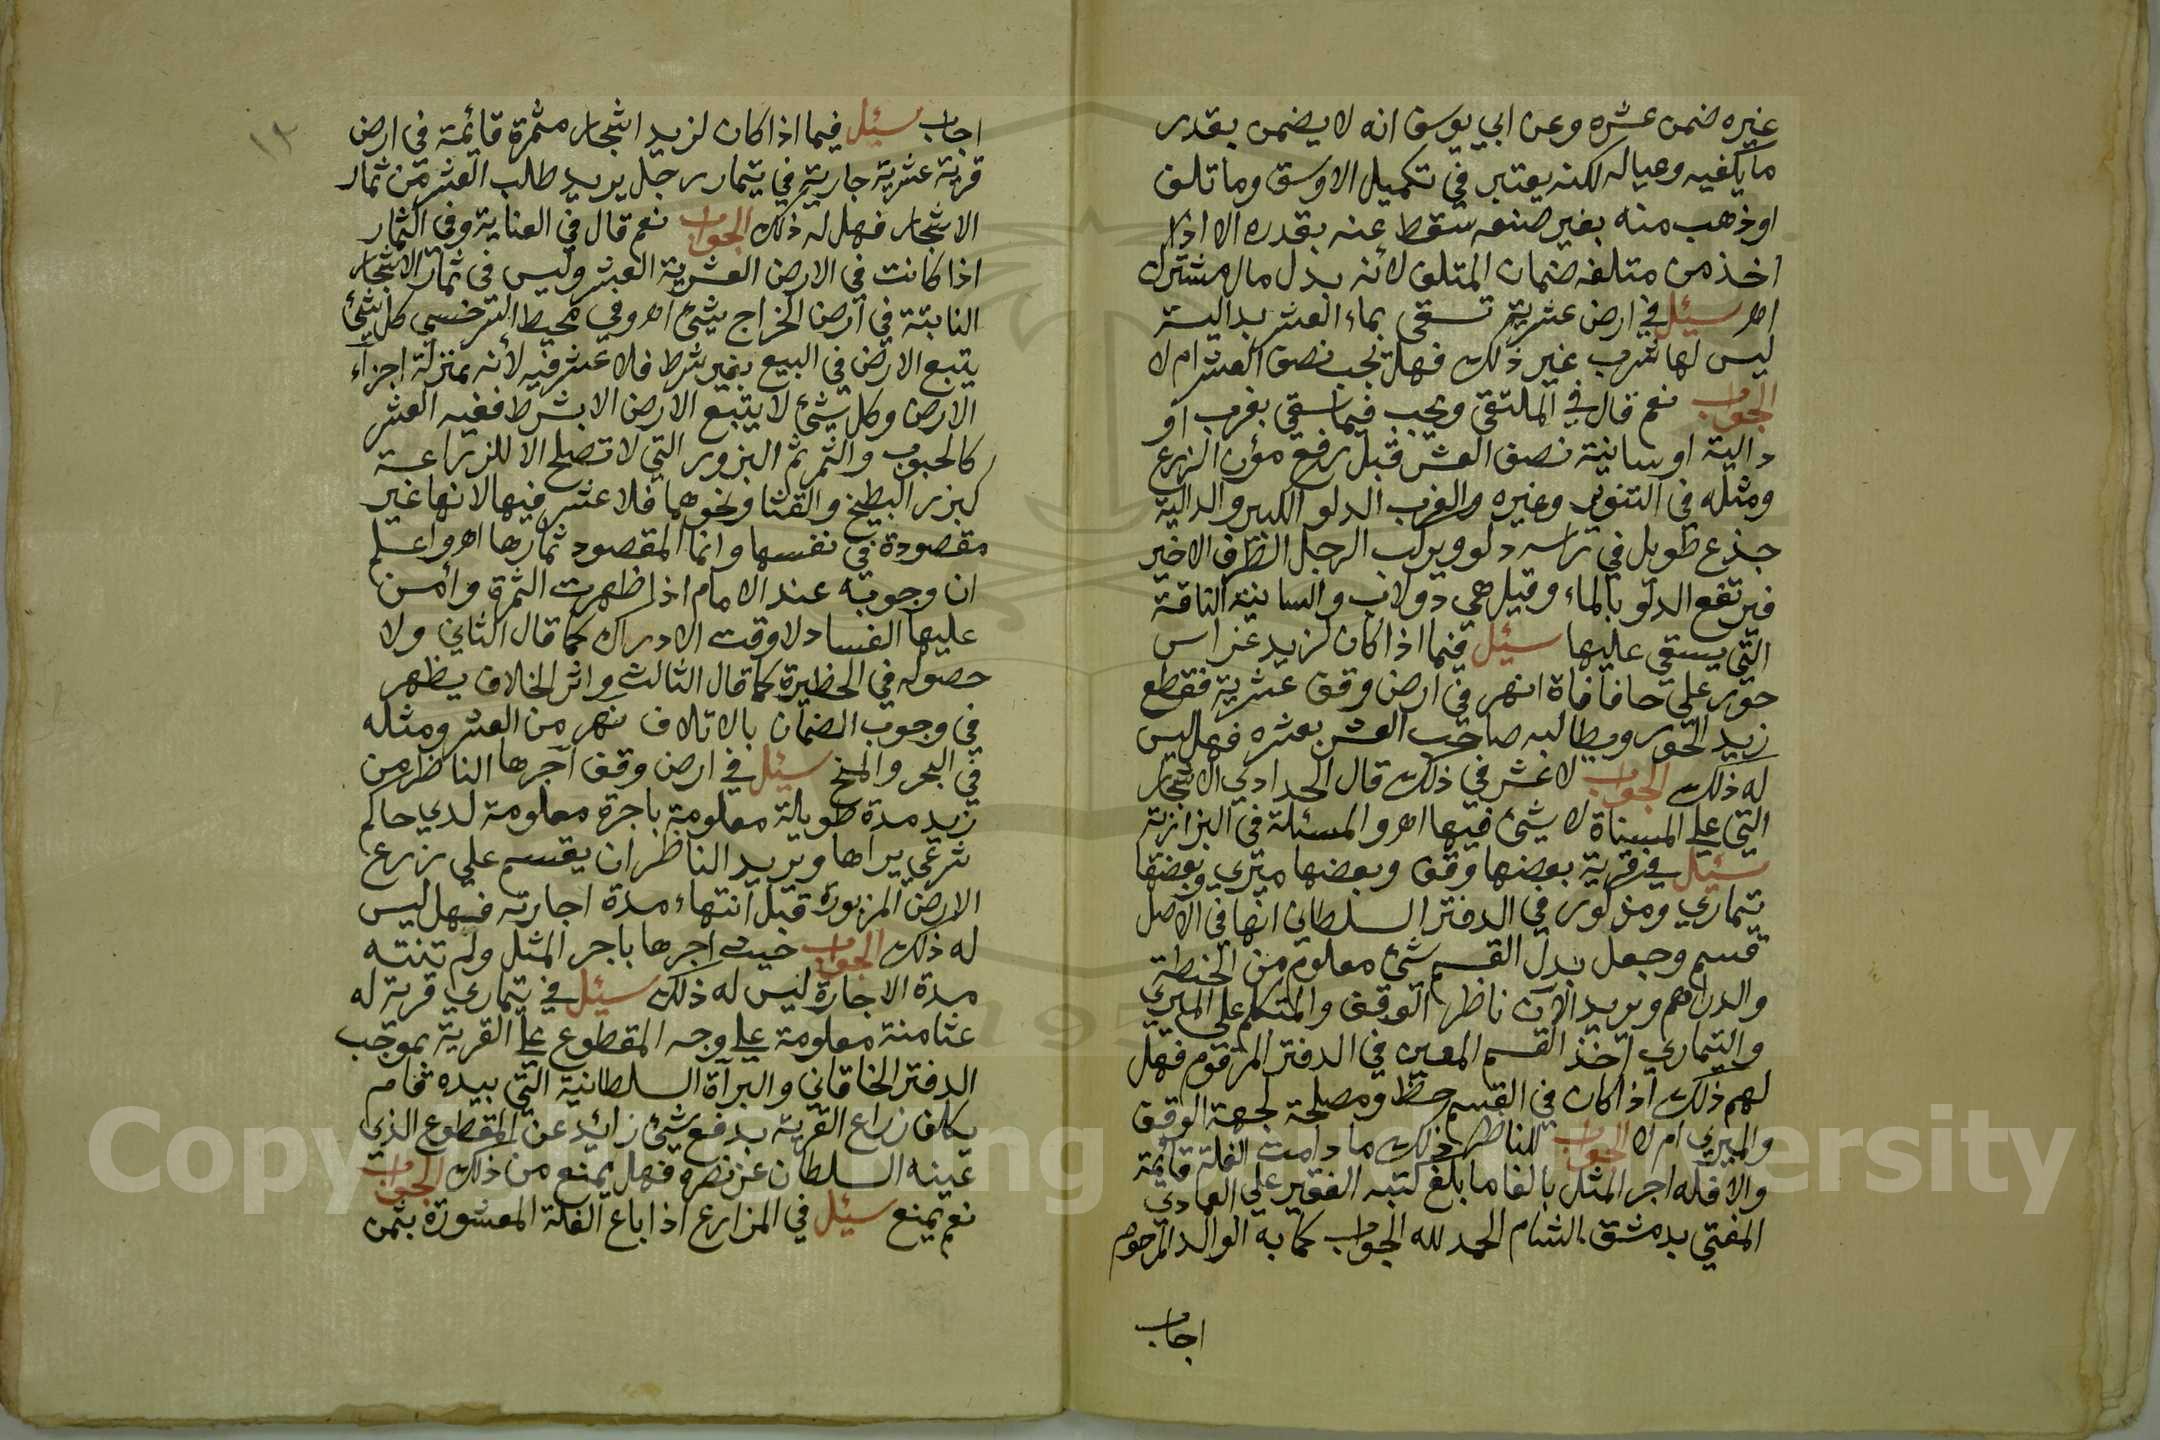 غيره ضمن عشره وعن ابي يوسف انه لا يضمن بقدر
ما يكفيه وعياله لكنه يعتبر في تكميل الاوسق وما تلف
او ذهب منه بغير صنعه سقط عنه بقدره الا اذا
اخذ من متلفه ضمان المتلف لأنه بدل مال مشترك
اه سئيل في ارض عشرية تسقى بماء العشر بدالية
ليس لها شرب غير ذلك فهل تجب نصف العشر ام لا
الجواب نعم قال في الملتقى ويجب فيما سقي بغرب او
دالية او سانية نصف العشر قبل رفع مؤن الزرع
ومثله في التنوير وغيره والغرب الدلو الكبير والدالية
جذع طويل في راسه دلو ويركب الرجل الطرف الاخير
فيرتفع الدلو بالماء وقيل هي دولاب والسانية الناقة
التي يسقي عليها سئيل فيما اذا كان لزيد غراس
حور على حافافاة انهر في ارض وقف عشرية فقطع
زيد الحور ويطالبه صاحب العشر بعشره فهل ليس
له ذلك الجواب لا عشر في ذلك قال الحدادي الاشجار
التي على المسناة لا شئ فيها اه والمسئلة في البزازية
سئيل في قرية بعضها وقف وبعضها ميري وبعضها
تيماري ومذكور في الدفتر السلطاني انها في الاصل
قسم وجعل بدل القسم شئ معلوم من الحنطة
والدراهم ويريد الآن ناظر الوقف والمتكلم على الميري
والتيماري اخذ القسم المعين في الدفتر المرقوم فهل
لهم ذلك اذا كان في القسم حظ ومصلحة لجهة الوقف
والميري ام لا الجواب للناظر ذلك ما دامت الغلة قائمة
والا فله اجر المثل بالغا ما بلغ كتبه الفقير علي العمادي
المفتي بدمشق الشام الحمد لله الجواب كما به الوالد المرحوم
اجاب
١٣
اجاب سئيل فيما اذا كان لزيد اشجار مثمرة قائمة في ارض
قرية عشرية جارية في تيمار رجل يريد طالب العشر من ثمار
الاشجار فهل له ذلك الجواب نعم قال في العناية وفي الثمار
اذا كانت في الارض العشرية العشر وليس في ثمار الاشجار
النابتة في ارض الخراج شئ اه وفي محيط السرخسي كل شئ
يتبع الارض في البيع بغير شرط فلا عشر فيه لأنه بمنزلة اجزاء
الارض وكل شئ لا يتبع الارض الا بشرط ففيه العشر
كالحبوب والثمر ثم البزور التي لا تصلح الا للزراعة
كبزر البطيخ والقثا ونحوهما فلا عشر فيها لانها غير
مقصودة في نفسها وانما المقصود ثمارها اه واعلم
ان وجوبه عند الامام اذا ظهرت الثمرة وأمن
عليها الفساد لا وقت الادراك كما قال الثاني ولا
حصوله في الحظيرة كما قال الثالث واثر الخلاف يظهر
في وجوب الضمان بالاتلاف نهر من العشر ومثله
في البحر والمنح سئيل في ارض وقف آجرها الناظر من
زيد مدة طويلة معلومة باجرة معلومة لدي حاكم
شرعي يراها ويريد الناظر ان يقسم على زرع
الارض المزبورة قبل انتهاء مدة اجارته فهل ليس
له ذلك الجواب حيث اجرها باجر المثل ولم تنته
مدة الاجارة ليس له ذلك سئيل في تيماري قرية له
عثامنة معلومة على وجه المقطوع على القرية بموجب
الدفتر الخاقاني والبرآة السلطانية التي بيده فقام
يكلف زراع القرية بدفع شئ زائد عن المقطوع الذي
عينه السلطان عز نصره فهل يمنع من ذلك الجواب
نعم يمنع سئيل في المزارع اذا باع الغلة المعشورة بثمن